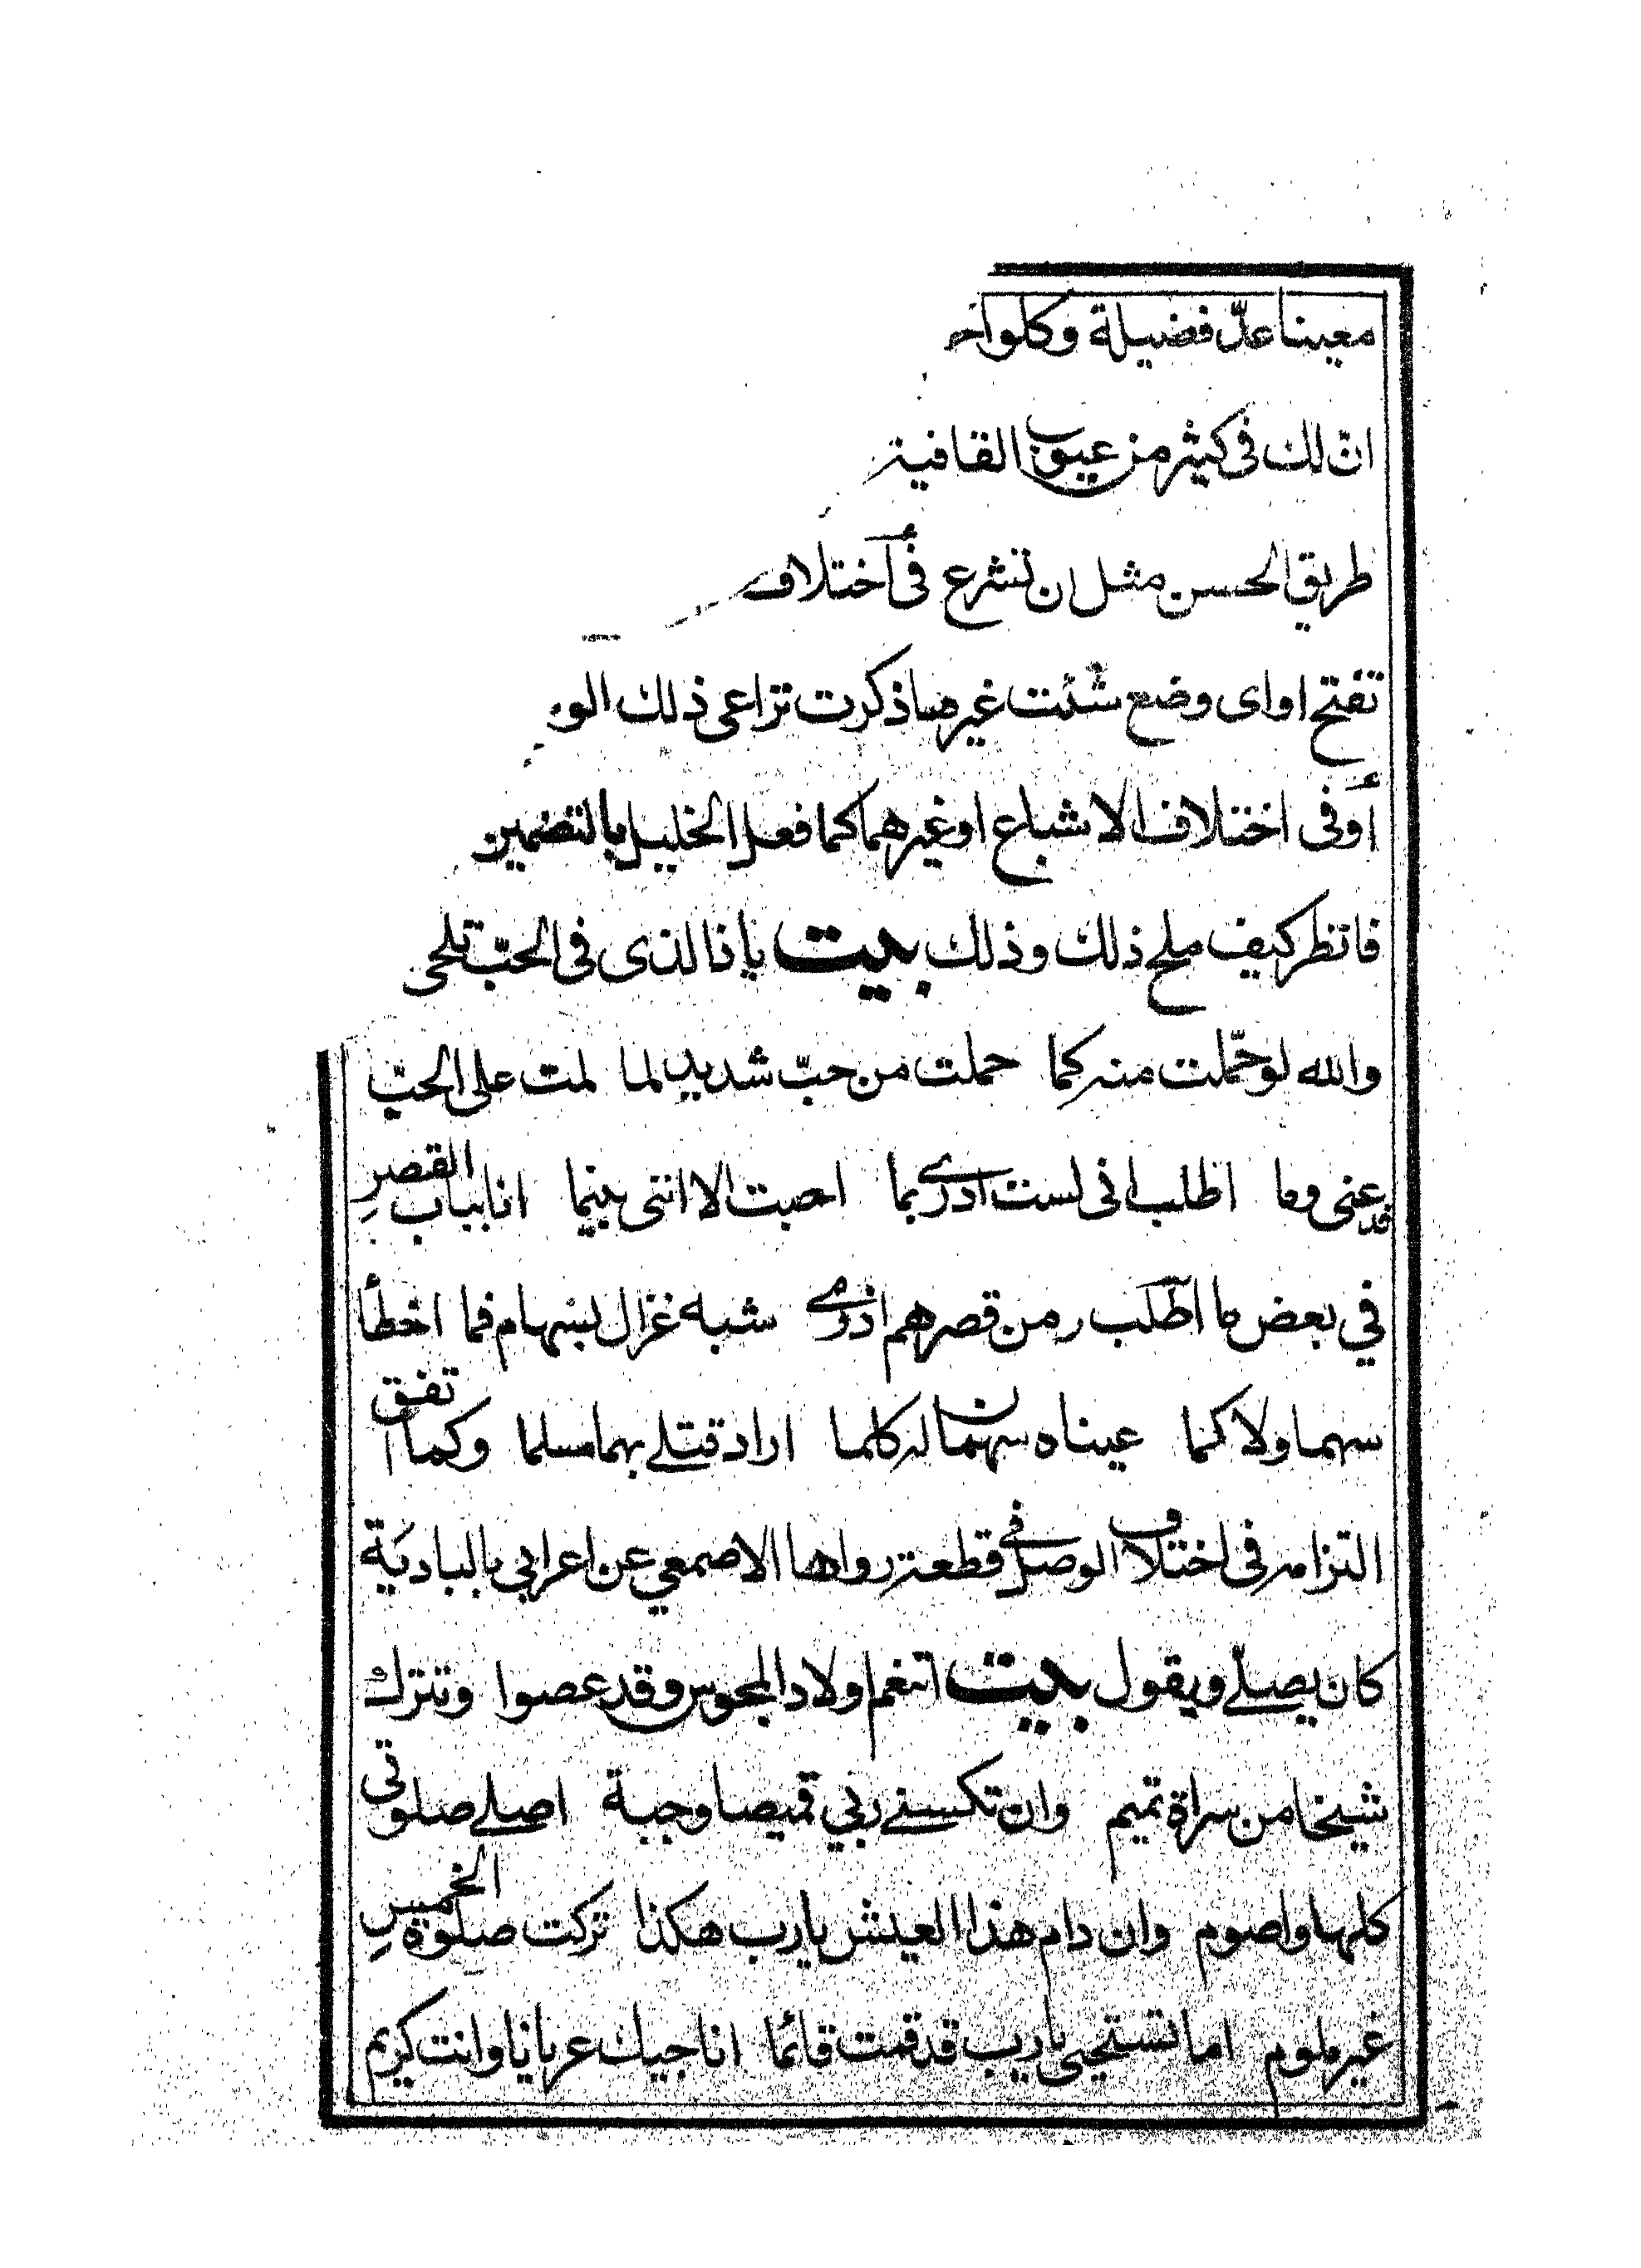 معينا عدّ فضيلة وكلوا
انّ لك فى كثير من عيوب القافية
طريق الحسن مثل ان تشرع فى أختلاف
تفتح او اى وضع شئت غير ما ذكرت تراعى ذلك
أو فى اختلاف الاشباع او غيرهما كما فعل الخليل بالتضمين
فانظر كيف ملح ذلك وذلك بيت ياذا الذى فى الحبّ تلحى
والله لو حمّلت منه كما حملت من حبّ شديد لما لمت على الحبّ
قد عنى وما اطلب انى لست ادرى بما احبت الا اننى بينما انا بباب القصرِ
في بعض ما اطلب من قصرهم اذرمى شبه غزال بسهام فما اخطأ
سهما ولا كما عيناه سهمان له كلما اراد قتلي بهما سلما وكما اتفق
التزامه فى اختلاف الوصل في قطعة رواها الاصمعي عن اعرابي بالبادية
كان يصلي ويقول بيت اتنعم اولاد المجوس وقد عصوا وتترك
شيخا من سراة تميم وان تكسني ربي قميصا وجبة اصلي صلوتى
كلها واصوم وان دام هذا العيش يا رب هكذا تركت صلوة الخمسِ
غير ملوم اما تستحيى يا رب قد قمت قائما اناجيك عريانا وانت كريم